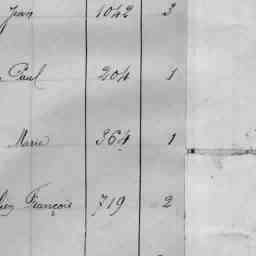 Jean 1042 3
Paul 204 1
Marie 364 1
François 719 2